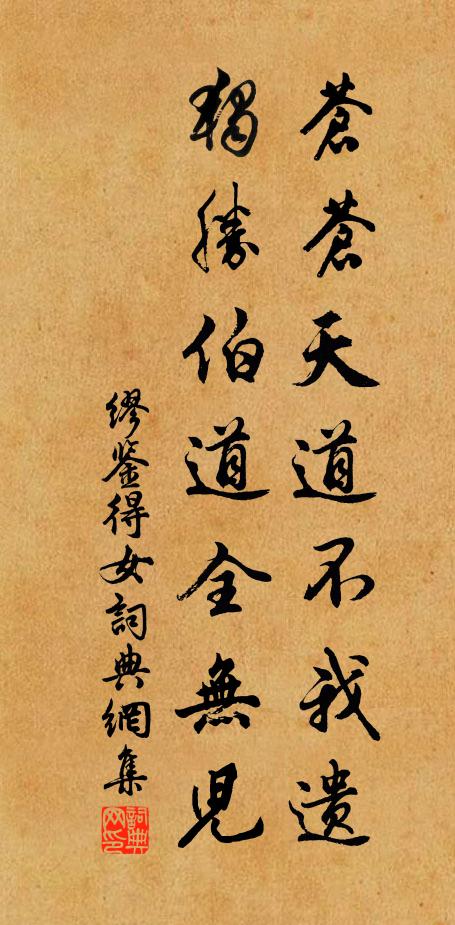 蒼蒼天道不我遺
猶勝伯道全無兒
繆鑒得女詞典網集
詞典网印